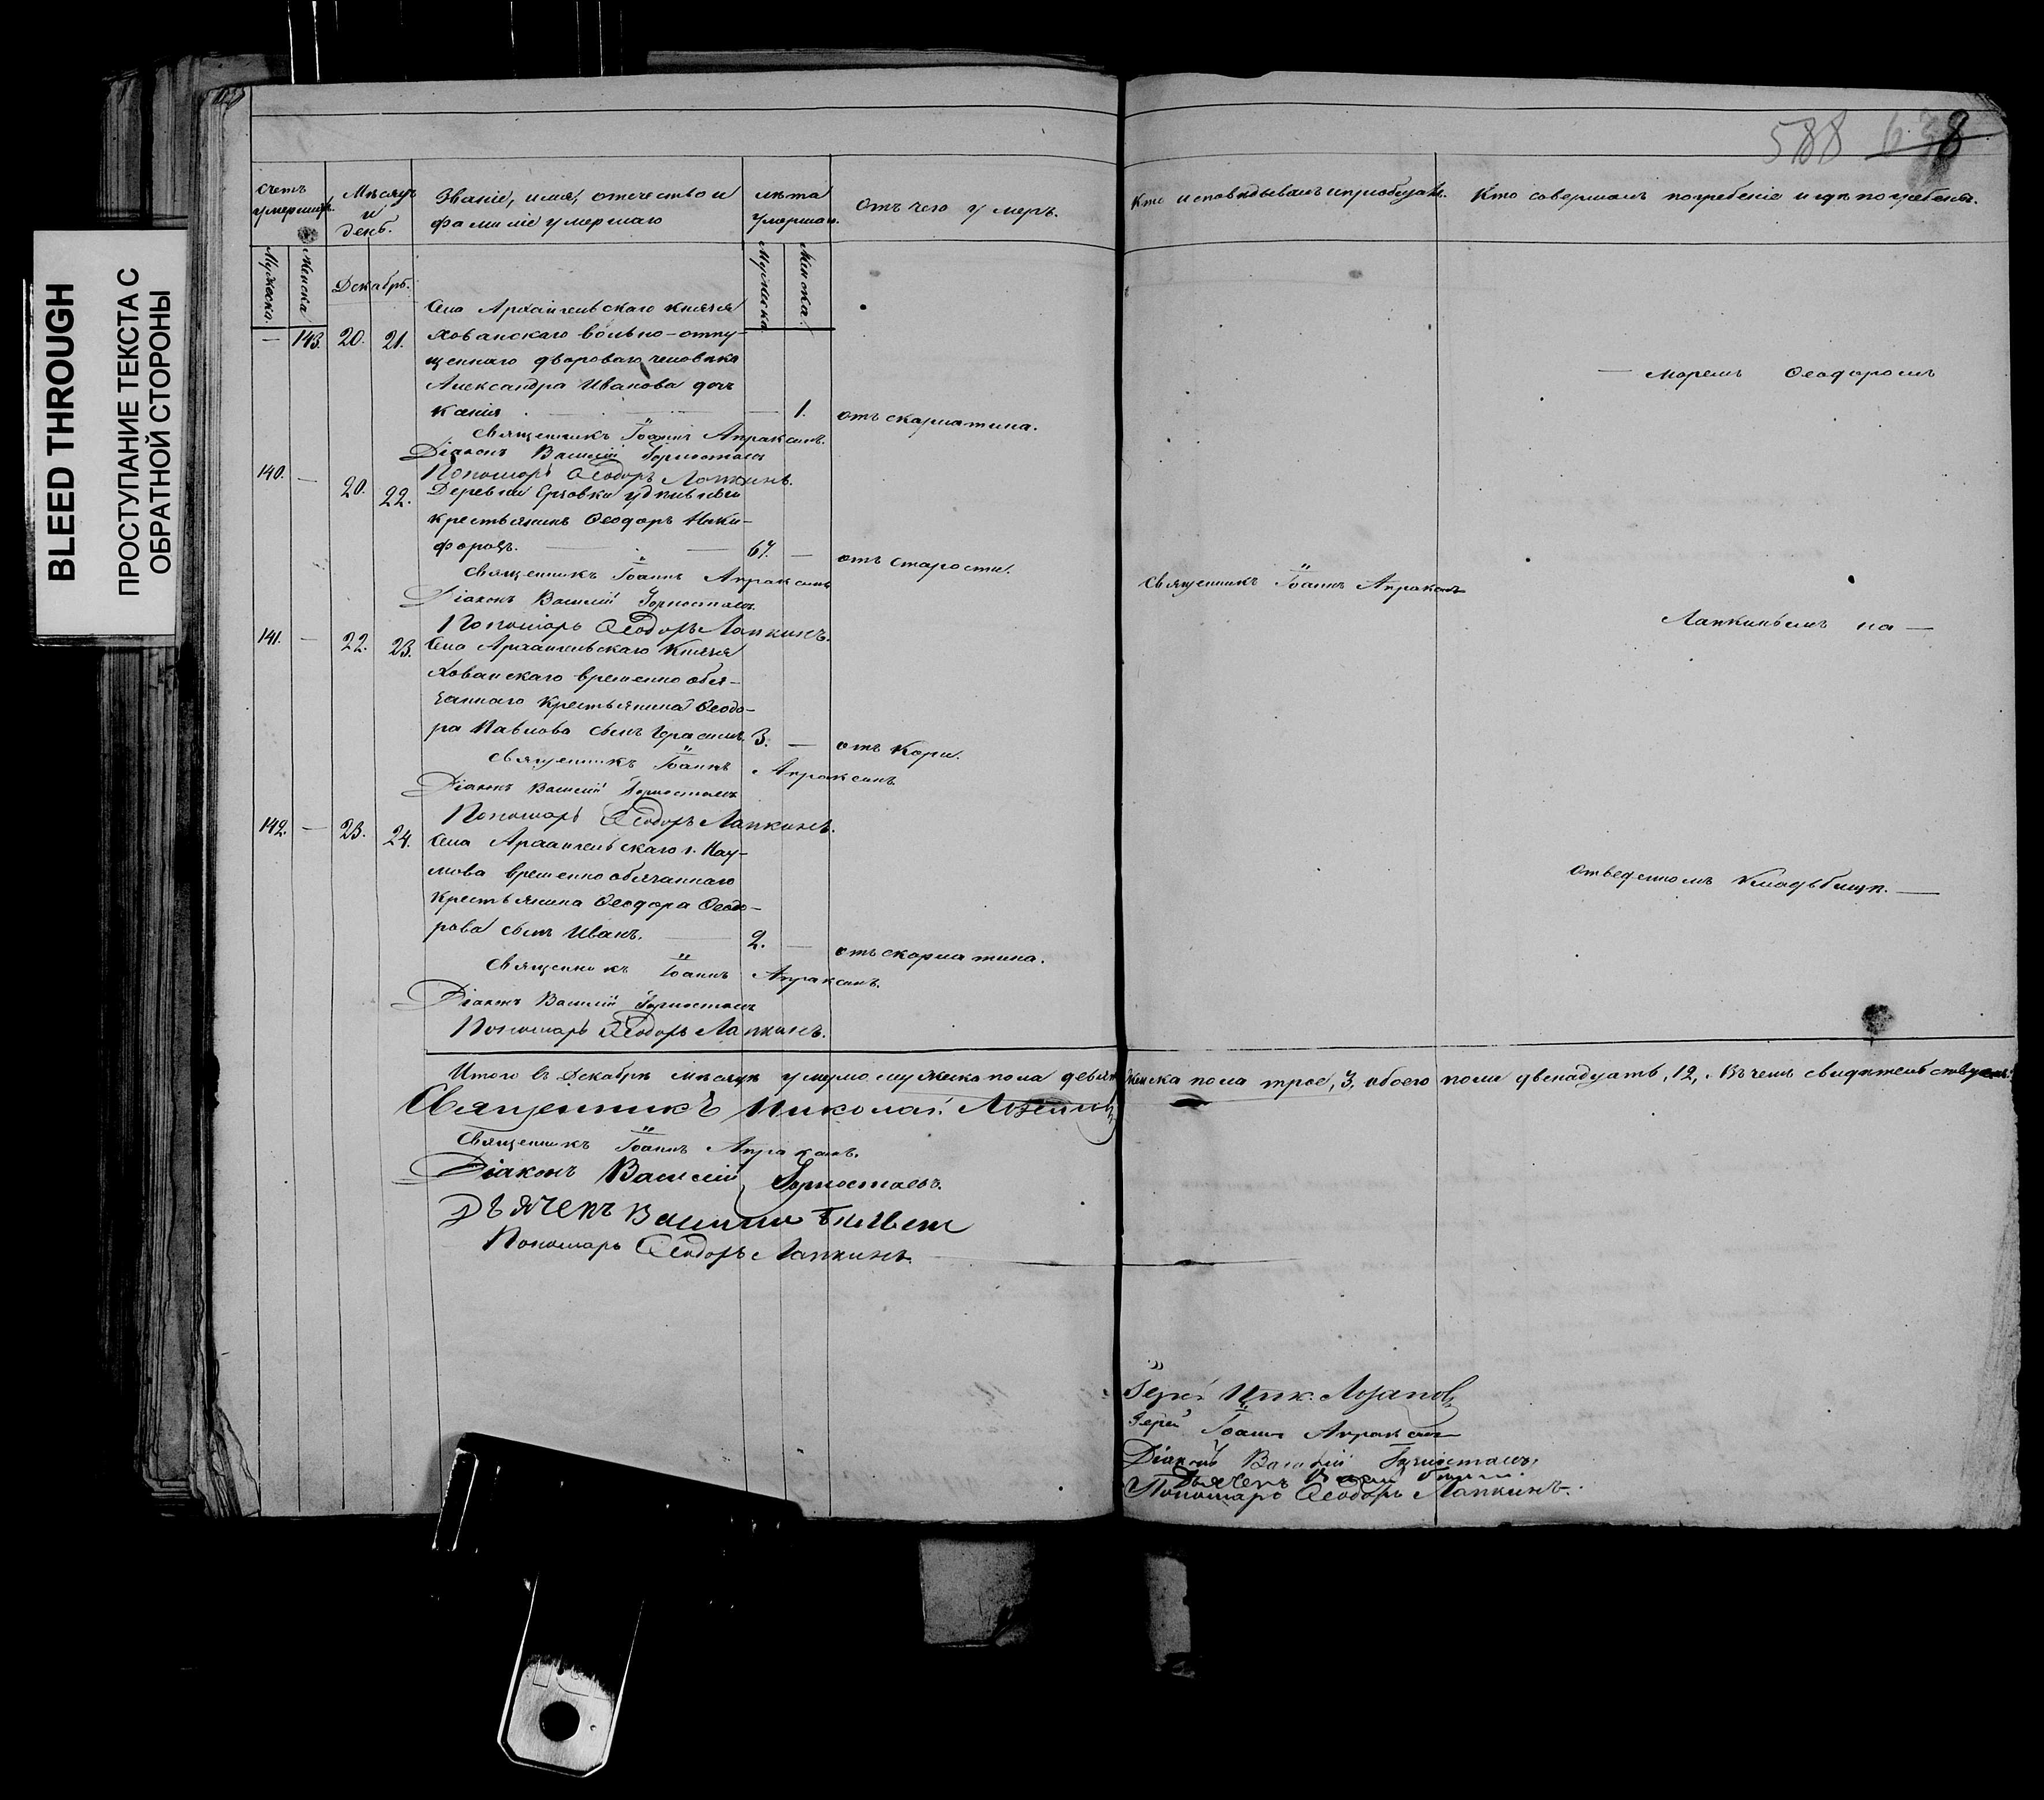 BLEED THROUGH
ПРОСТУПАНИЕ ТЕКСТА С
ОБРАТНОЙ СТОРОНЫ
588
счетъ умершихъ.
Мѣсяцъ и день.
Званіе, имя, отечество и
фамиліе умершаго
лѣта умершаго.
Отъ чего умеръ.
Мужеска.
Женска
Декабрь.
Мужеска
Женска.
— 143. 20. 21.
Села Архангельскаго Князя
Хованскаго вольно-отпу-
щеннаго двороваго человѣка
Александра Иванова дочь
Ксенія — 1. отъ скарлатина.
Священникъ Іоаннъ Апраксинъ.
Діаконъ Василій Горностаевъ
Пономарь Ѳеодоръ Лапкинъ.
140. — 20. 22.
Деревни удѣльный
крестьянинъ Ѳеодоръ Ники-
форовъ. — 67. — отъ старости.
Священникъ Іоаннъ Апраксинъ
Діаконъ Василій Горностаевъ.
Пономарь Ѳеодоръ Лапкинъ.
141. — 22. 23.
Села Архангельскаго Князя
Хованскаго временно обя-
заннаго крестьянина Ѳеодо-
ра Павлова сынъ Герасимъ. 3. — отъ Кори.
Священникъ Іоаннъ Апраксинъ
Діаконъ Василій Горностаевъ
Пономарь Ѳеодоръ Лапкинъ.
142. — 23. 24.
Села Архангельскаго г. Нау-
мова временно обязаннаго
крестьянина Ѳеодора Ѳеодо-
рова сынъ Иванъ. — 2. — отъ скарлатина.
Священникъ Іоаннъ Апраксинъ.
Діаконъ Василій Горностаевъ
Пономарь Ѳеодоръ Лапкинъ.
Кто исповѣдывалъ и пріобщалъ.
Кто совершалъ погребеніе и гдѣ погребенъ.
— маремъ Ѳеодоромъ
Священникъ Іоаннъ Апраксинъ
Лапкинымъ на —
отведенномъ Кладбищѣ. —
Итого въ Декабрѣ мѣсяцѣ умерло мужеска пола девять женска пола трое, 3, обоего пола двенадцать, 12,. Въ чемъ свидѣтельствуемъ:
Священникъ Николай
Священникъ Іоаннъ Апраксинъ.
Діаконъ Василій Горностаевъ.
Дьячекъ Василий
Пономарь Ѳеодоръ Лапкинъ
Іерей Ник.
Іерей Іоаннъ Апраксинъ
Діаконъ Василій Горностаевъ,
Дьячекъ
Пономарь Ѳеодоръ Лапкинъ.